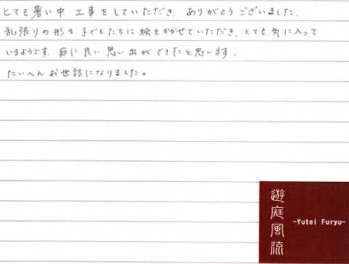 とても暑い中、工事をしていただき、ありがとうございました。
乱張りの形を子どもたちに絵をかかせていただき、とても気に入って
いるようです。庭に良い思い出ができたと思います。
たいへんお世話になりました。
遊庭風流
-Yutei Furyu-